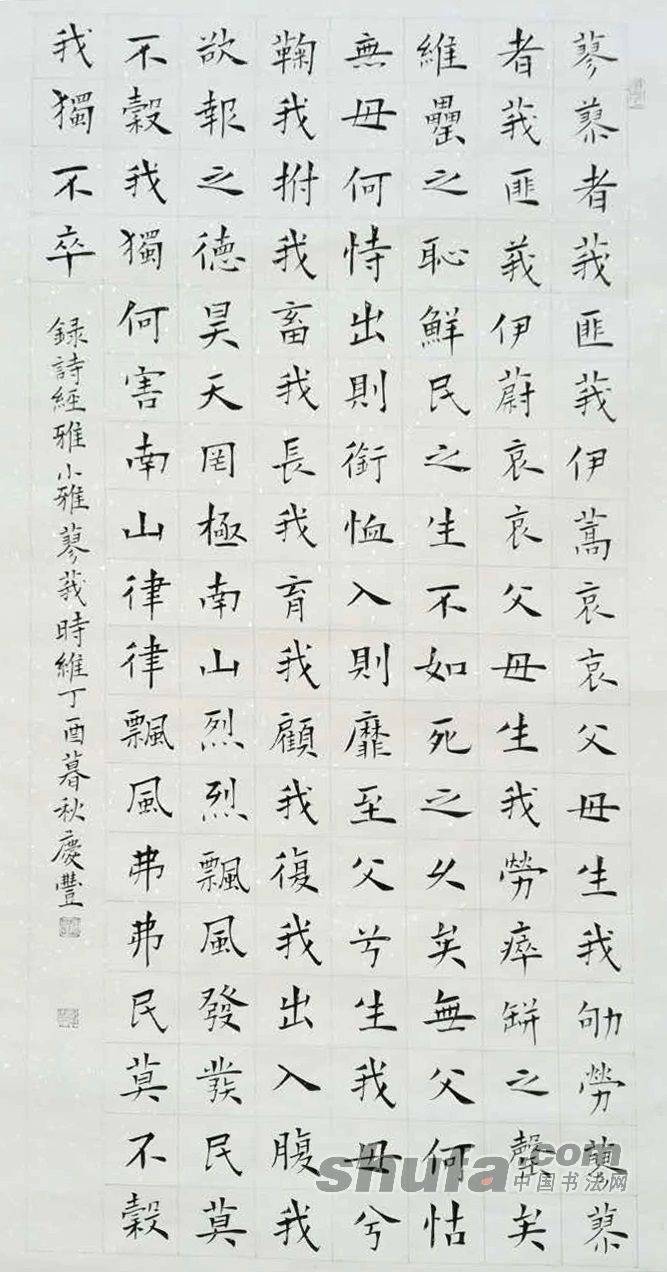 蓼蓼者莪匪莪伊蒿哀哀父母生我劬勞蓼蓼
者莪匪莪伊蔚哀哀父母生我勞瘁缾之罄矣
維罍之恥鮮民之生不如死之久矣無父何怙
無母何恃出則銜恤入則靡至父兮生我母兮
鞠我拊我畜我長我育我顧我復我出入腹我
欲報之德昊天罔極南山烈烈飄風發發民莫
不穀我獨何害南山律律飄風弗弗民莫不穀
我獨不卒
録詩經雅小雅蓼莪時維丁酉暮秋慶豐
shufa.com
中国书法网